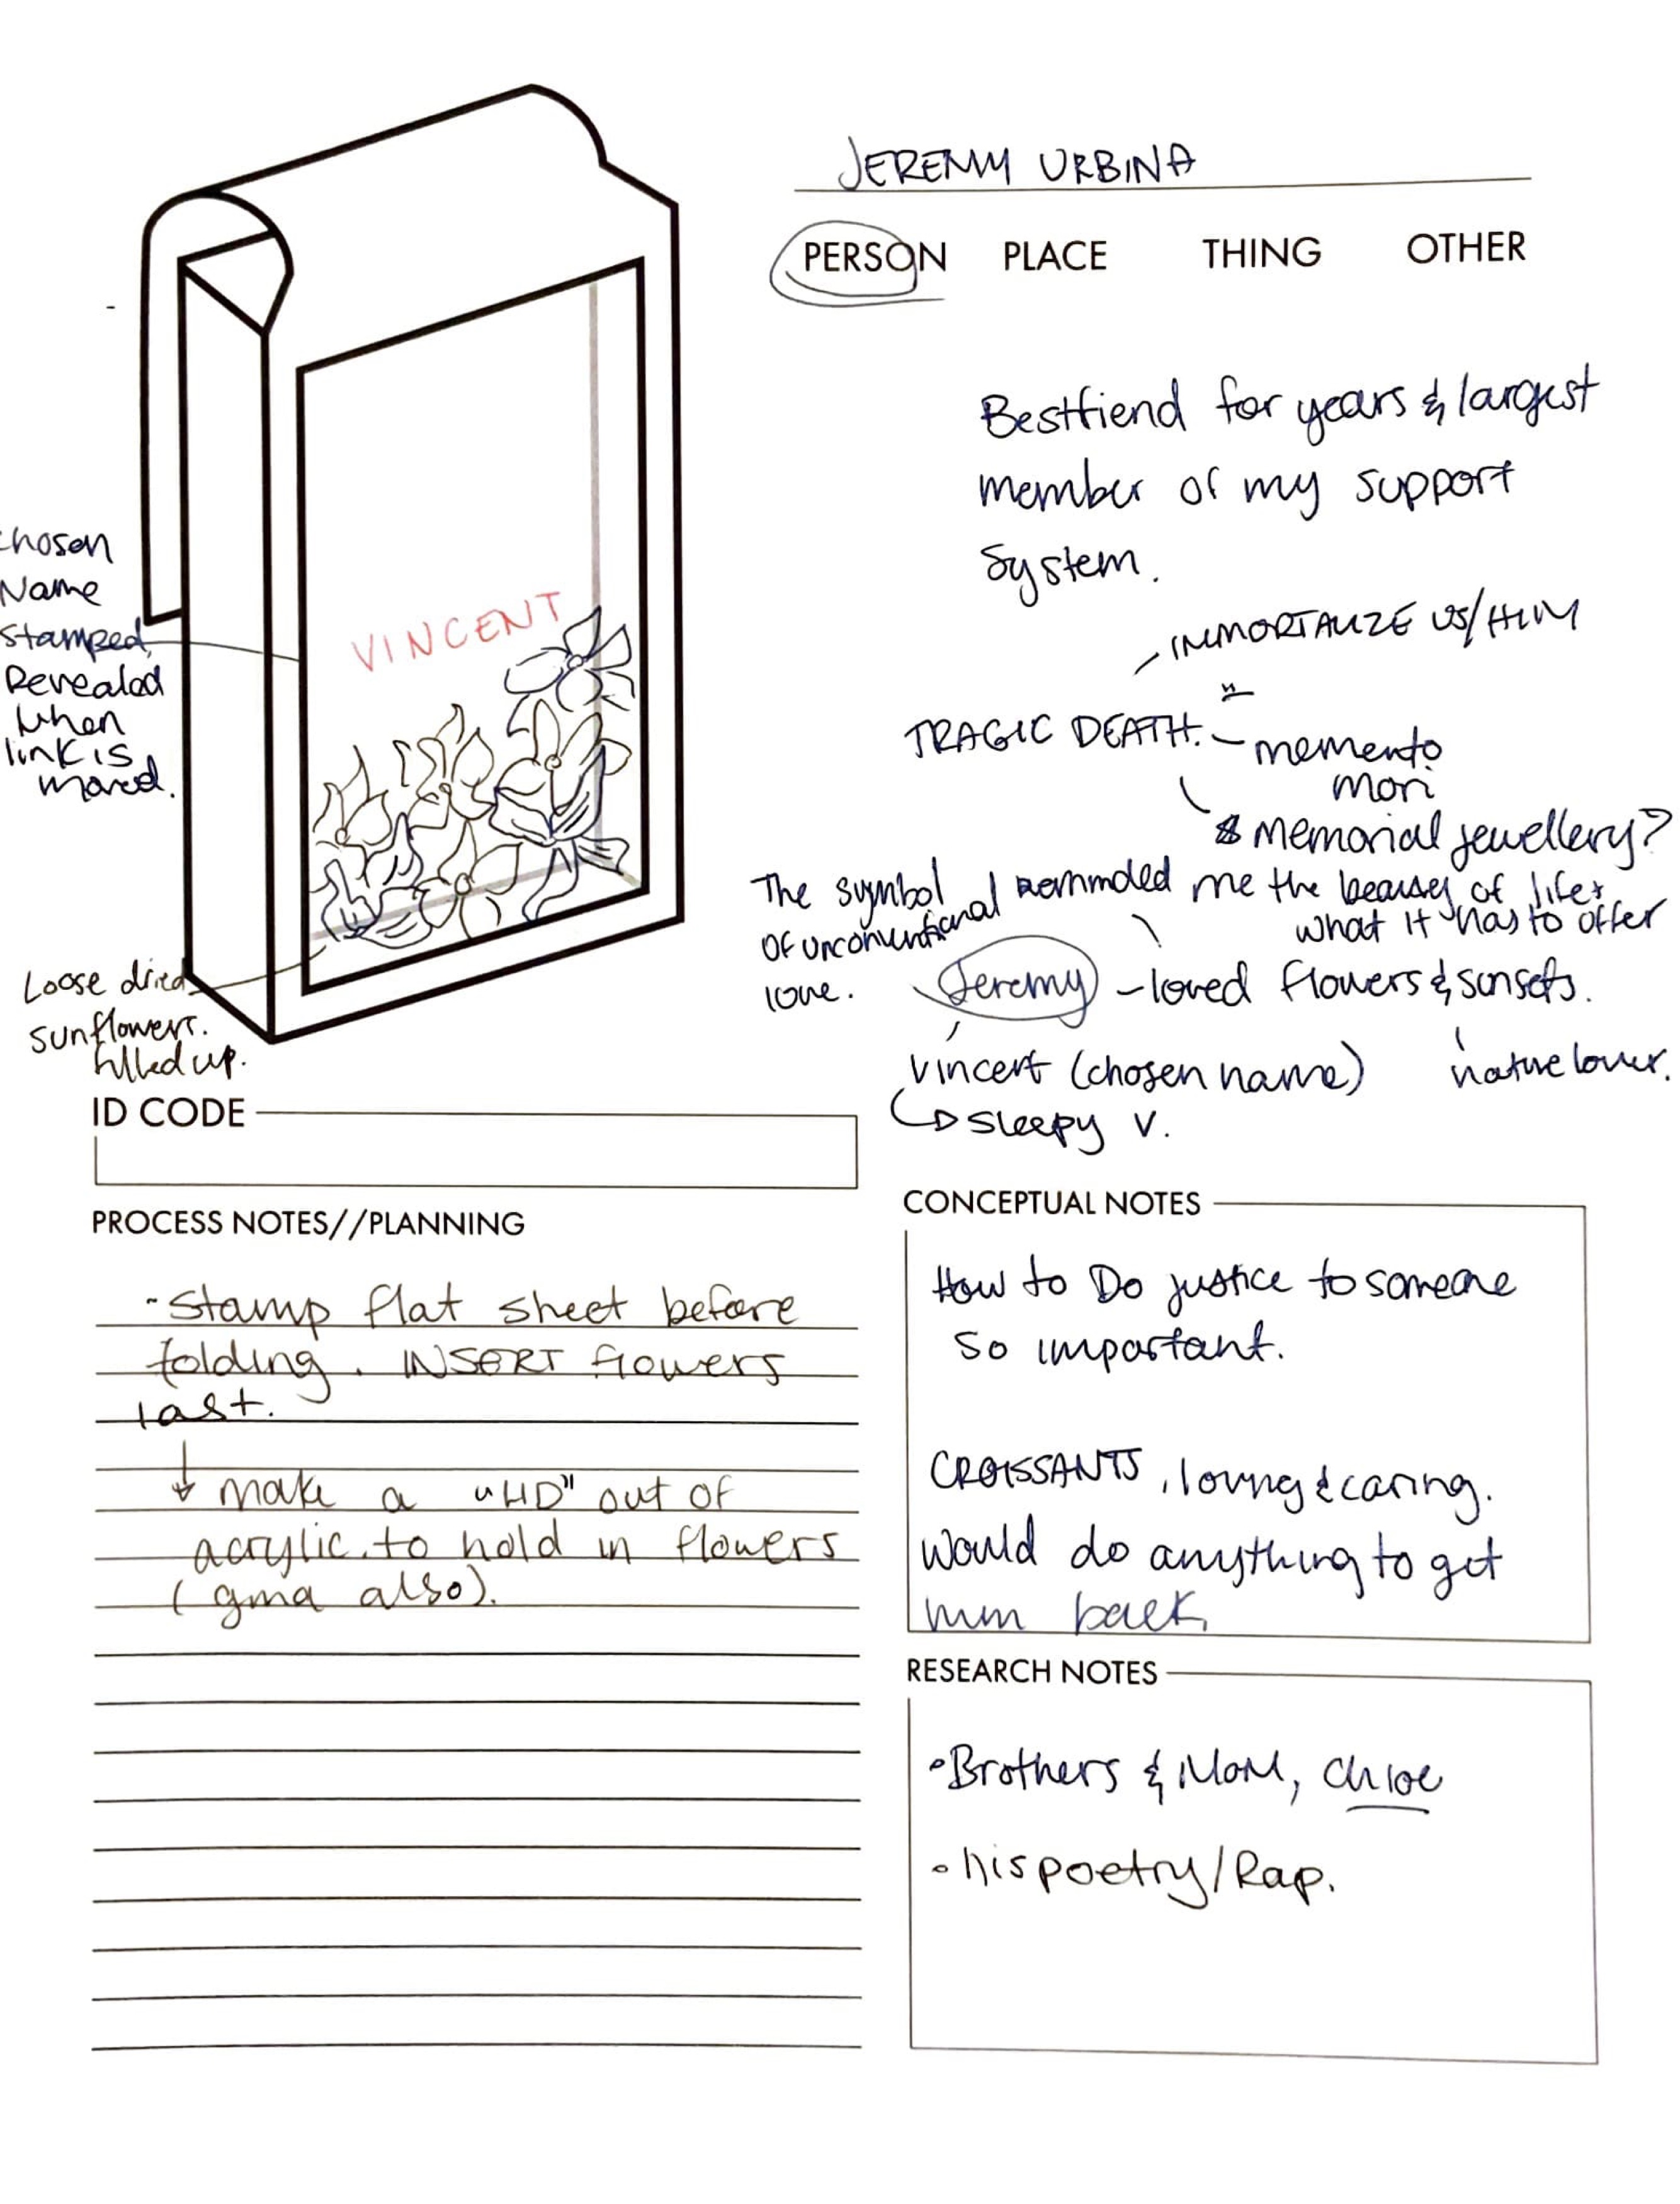 JEREMY URBINA
PERSON PLACE THING OTHER
Bestfiend for years & largest
member of my support
System.
IMMORTALIZE US/HIM
TRAGIC DEATH. - memento
mori
Memorial Jewellery?
The symbol
of unconventional
love.
remmded me the beauty of life +
what it has to offer
Jeremy - loved flowers & sunsets.
nature lover.
Vincent (chosen name)
sleepy V.
chosen
Name
stamped,
Revealed
when
link is
moved.
VINCENT
Loose dried
sunflowers.
filled up.
ID CODE
PROCESS NOTES//PLANNING
- Stamp flat sheet before
folding. INSERT flowers
last.
make a "LID" out of
acrylic. to hold in flowers
(gma also).
CONCEPTUAL NOTES
How to Do justice to someone
so important.
CROISSANTS, loving & caring.
Would do anything to get
him back.
RESEARCH NOTES
• Brothers & Mom, Chloe
• his poetry/Rap.